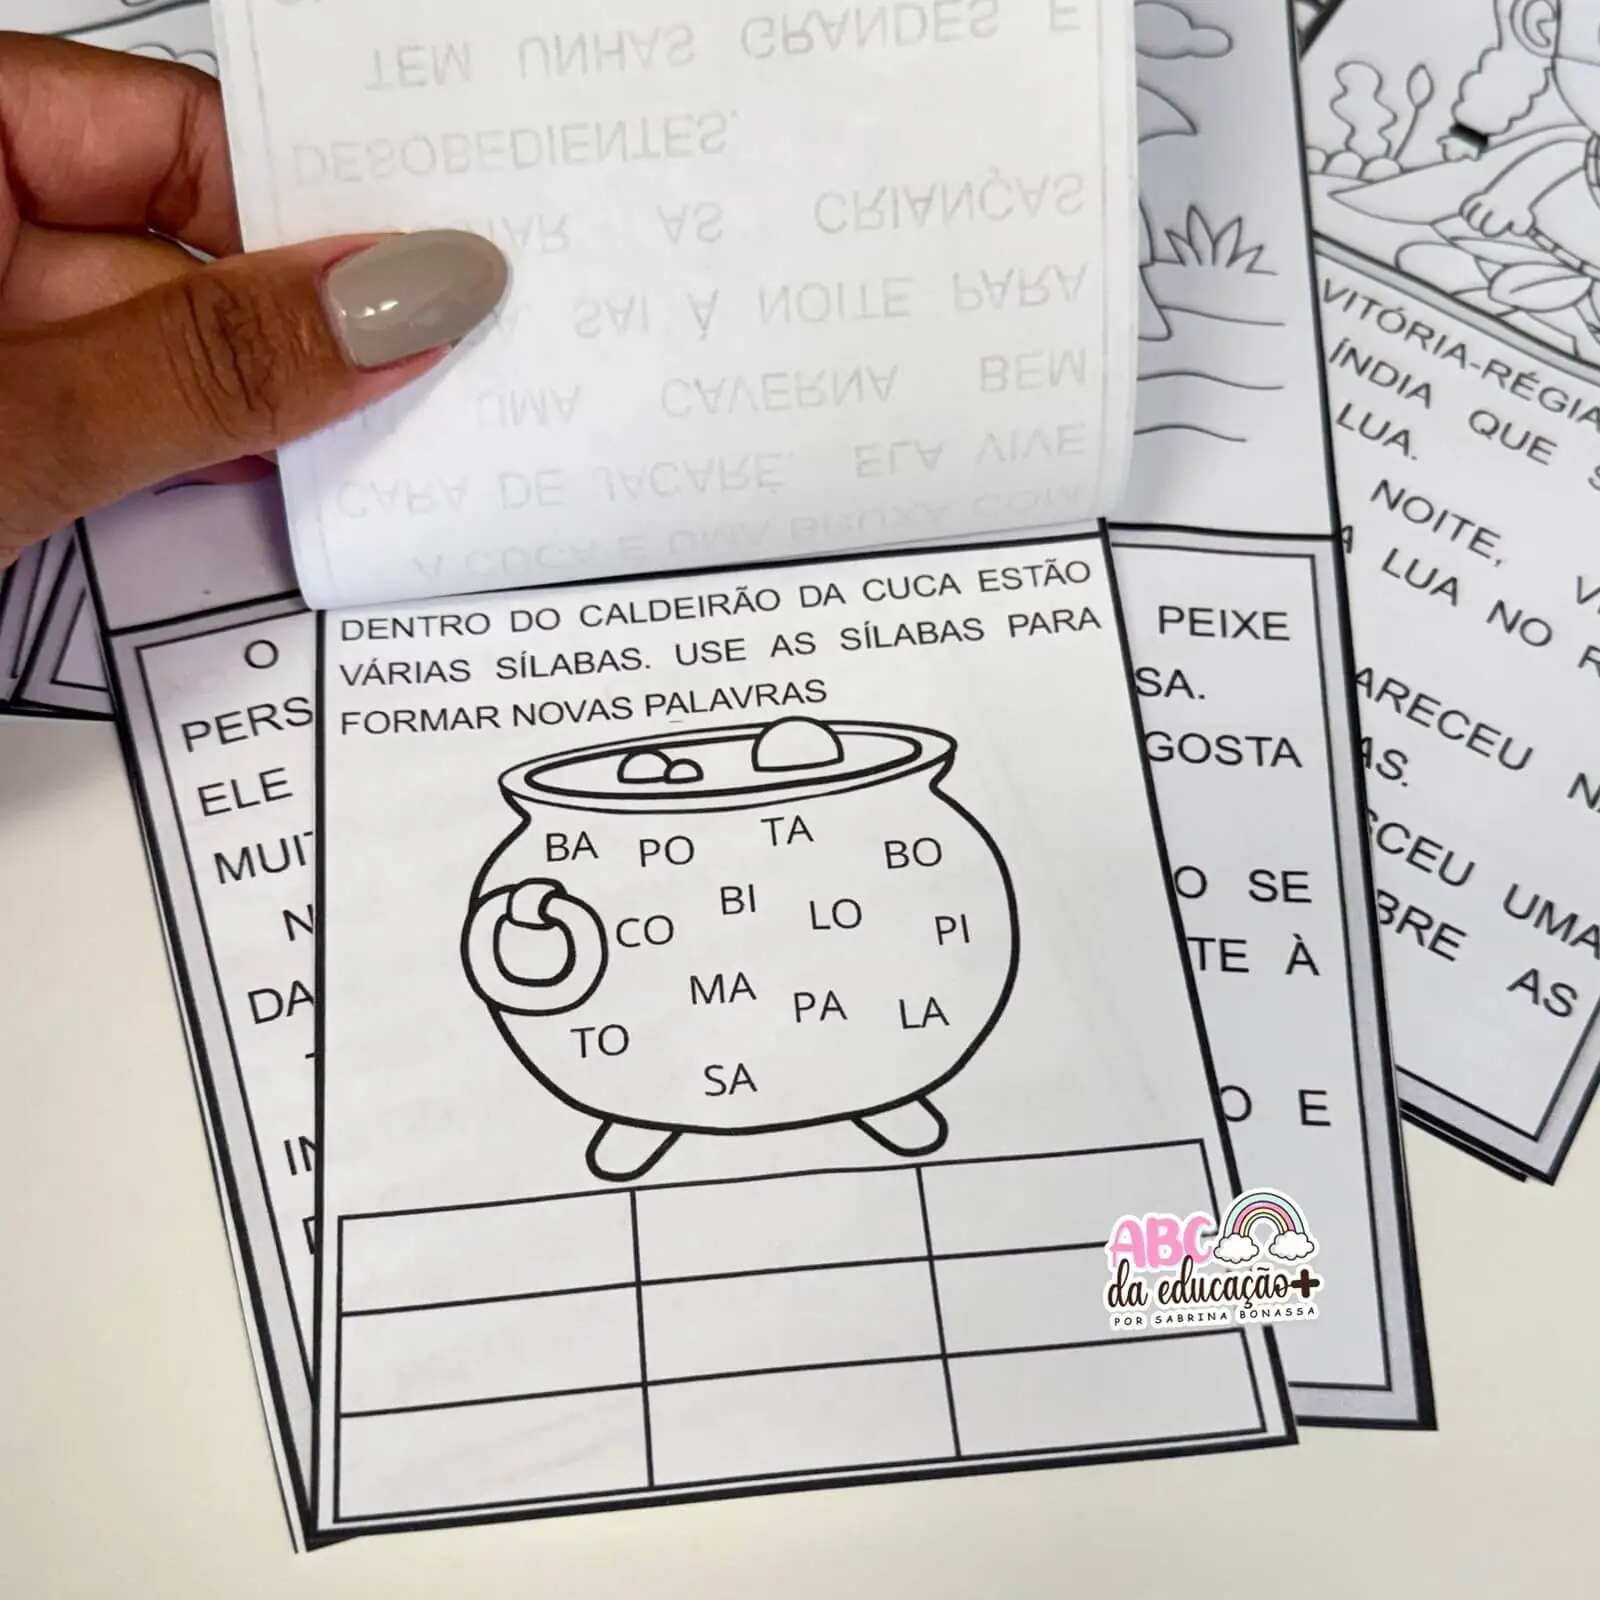 TEM UNHAS GRANDES E
DESOBEDIENTES.
AS CRIANÇAS
SAI À NOITE PARA
UMA CAVERNA BEM
CARA DE JACARÉ. ELA VIVE
A CUCA É UMA BRUXA COM
DENTRO DO CALDEIRÃO DA CUCA ESTÃO
VÁRIAS SÍLABAS. USE AS SÍLABAS PARA
FORMAR NOVAS PALAVRAS
BA PO TA BO
CO BI LO PI
MA PA LA
TO SA
O
PERS
ELE
MUIT
N
DA
PEIXE
SA.
GOSTA
O SE
TE À
O E
VITÓRIA-RÉGIA
ÍNDIA QUE S
LUA.
NOITE,
A LUA NO R
ARECEU N
AS.
SCEU UMA
BRE AS
ABC
da educação+
POR SABRINA BONASSA